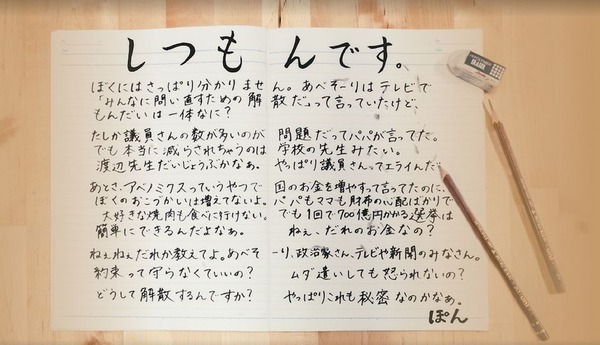 しつもんです。
ぼくにはさっぱり分かりません。あべそーりはテレビで
「みんなに問い直すための解散だ」って言っていたけど、
もんだいは一体なに？
たしか議員さんの数が多いのが問題だってパパが言ってた。
でも本当に減らされちゃうのは学校の先生みたい。
渡辺先生だいじょうぶかなぁ。やっぱり議員さんってエライんだ
あとさ、アベノミクスっていうやつで国のお金を増やすって言ってたのに、
ぼくのおこづかいは増えてないよ。パパもママも財布の心配ばかりで
大好きな焼肉も食べに行けない。でも1回で700億円かかる選挙は
簡単にできるんだよなぁ。ねぇ、だれのお金なの？
ねぇねぇだれか教えてよ。あべそーり、政治家さん、テレビや新聞のみなさん。
約束って守らなくていいの？ムダ遣いしても怒られないの？
どうして解散するんですか？やっぱりこれも秘密なのかなぁ。
ぽん